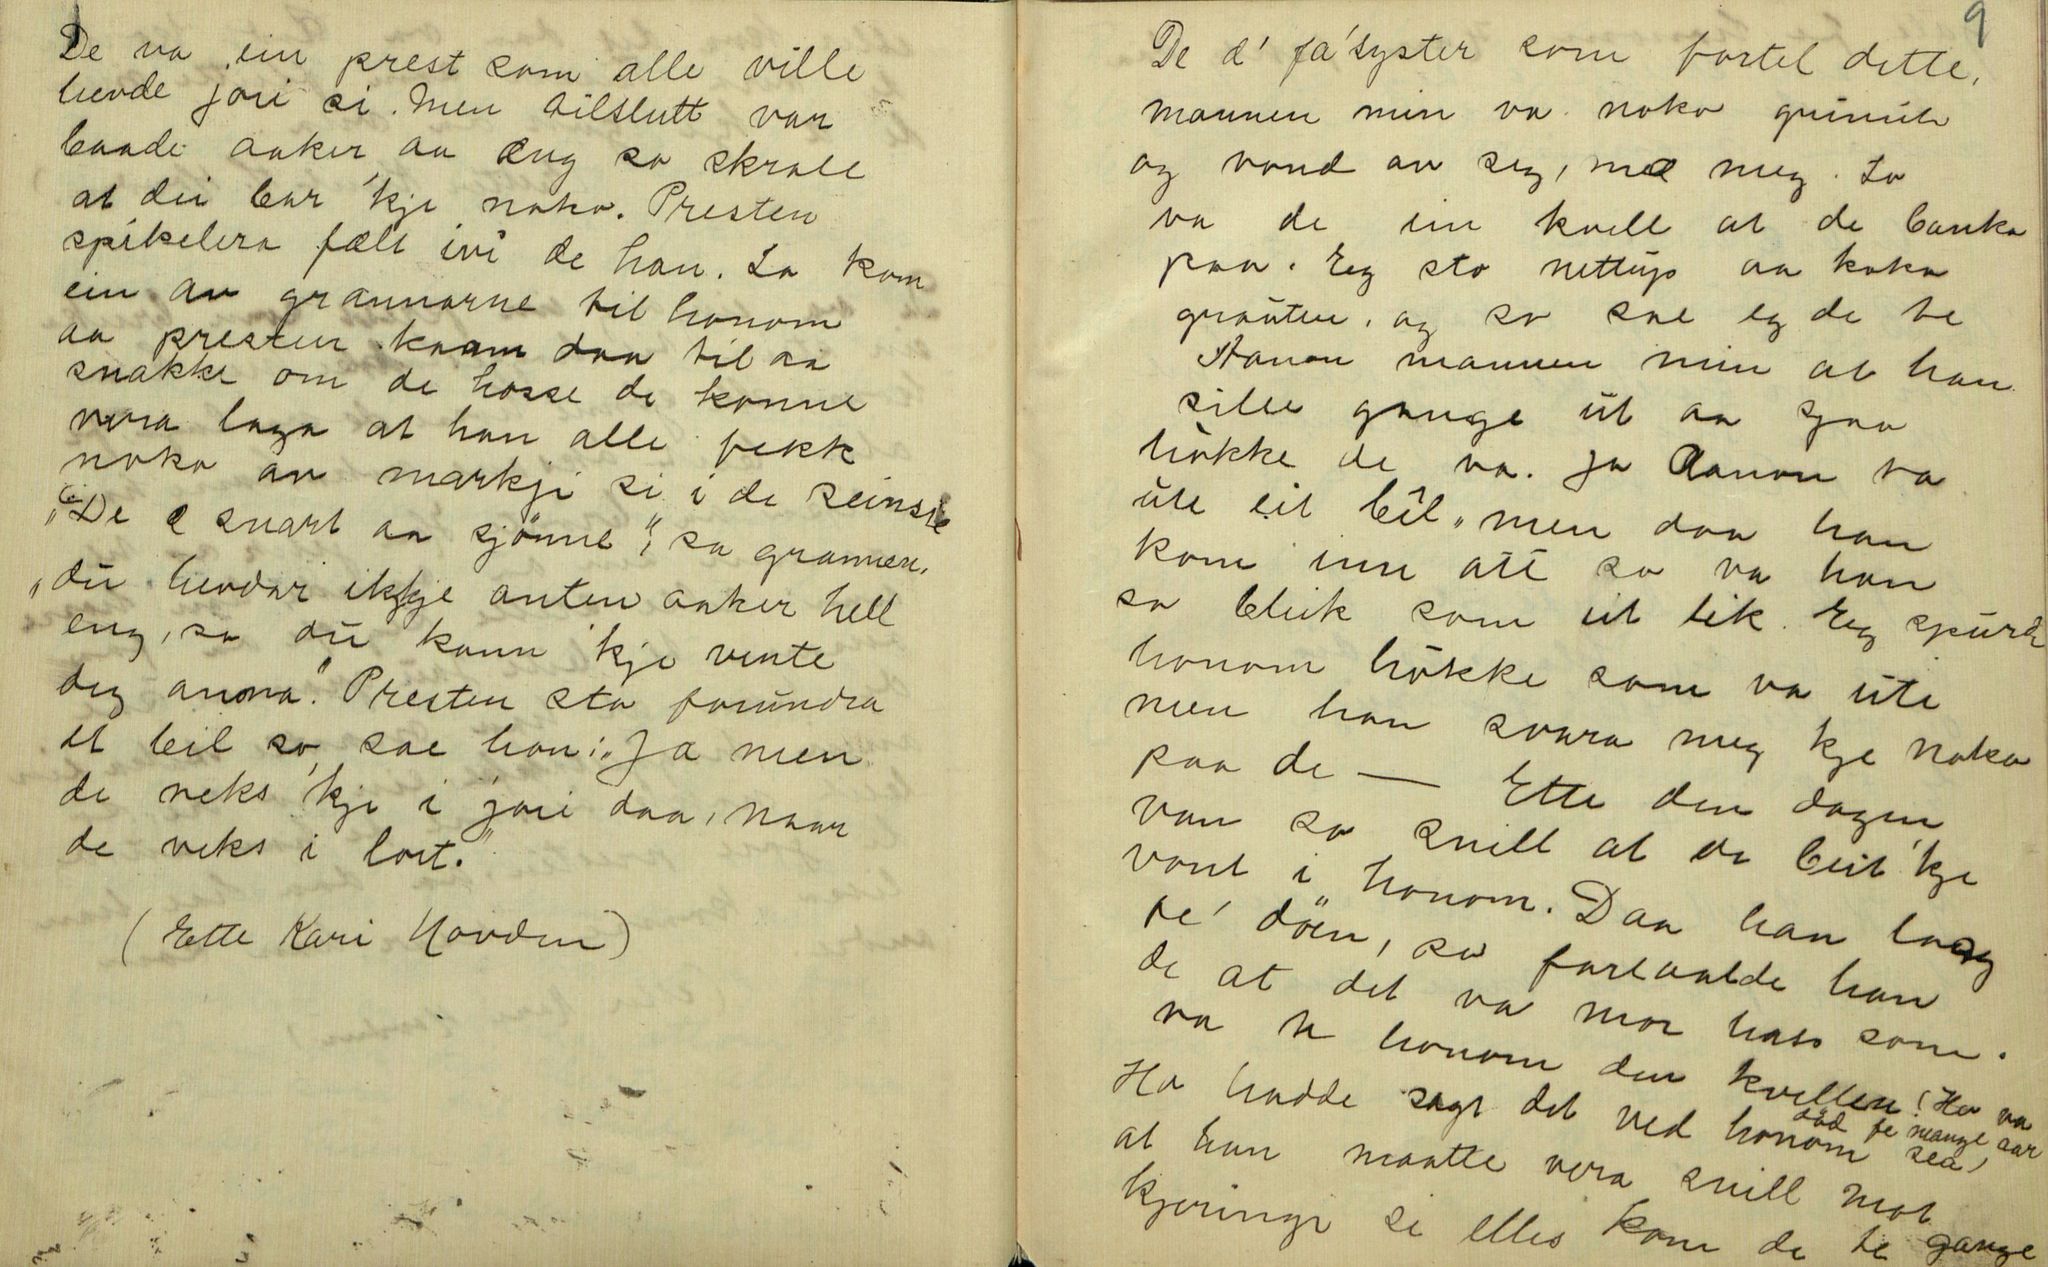 De va ein prest som alle ville
hevde jori si. Men tilslutt var
baade aaker aa eng so skrale
at dei bar 'kje noko. Presten
spikelera fælt ivi de han. So kom
ein av grannarne til honom
aa presten kaam daa til aa
snakke om de hosse de konne
vera laga at han alle fekk
noko av markji si i de seinste
"De e snart aa sjönne", sa grannen,
"du hevdar ikkje anten aaker hell
eng, so du kann 'kje vente
deg anna." Presten sto forundra
et beil so sae han: "Ja men
de veks 'kje i jori daa, naar
de veks i lort."
(Ette Kari Hovden)
9
De æ' fa'syster som fortel dette,
mannen min va noko
og vond av seg, mæ meg. So
va de ein kvell at de banka
paa. Eg sto nettup aa koka
grauten, og so sae eg de te
Aanon mannen min at han
sille gange ut aa sjaa
hökke de va. Ja Aanon va
ute eit bil, men daa han
kom inn att so va han
so bleik som eit lik. Eg spurde
honom hökke som va ute
men han svara meg kje noko
paa de — Ette den dagen
van so snill at de beit 'kje
vont i honom. Daa han laag
te' döen, so fortaalde han
de at det va mor hass som
va te honom den kvellen. (Ho va
död fe mange aar
sea)
Ho hadde sagt det ved honom
at han maatte vera snill mot
kjeringi si elles kom de te gange